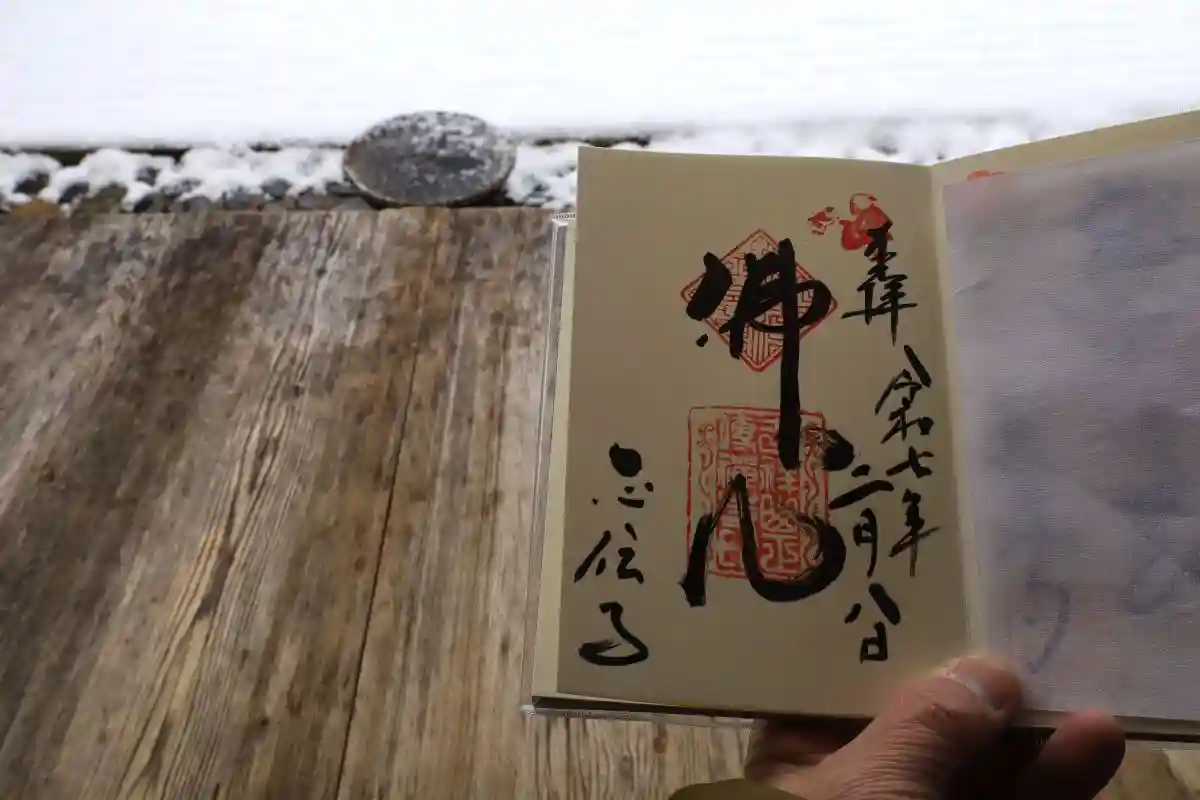 奉拝
令和七年
二月八日
佛心
正伝寺